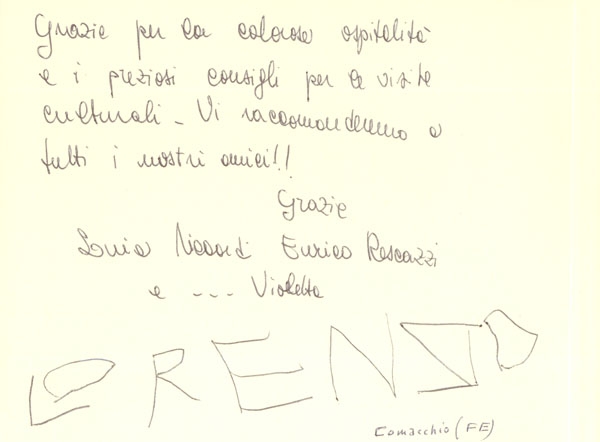 Grazie per la calorosa ospitalità
e i preziosi consigli per le visite
culturali - Vi raccomanderemo a
tutti i nostri amici!!
Grazie
Enrico
e --- Violetta
LORENZO
Comacchio (FE)